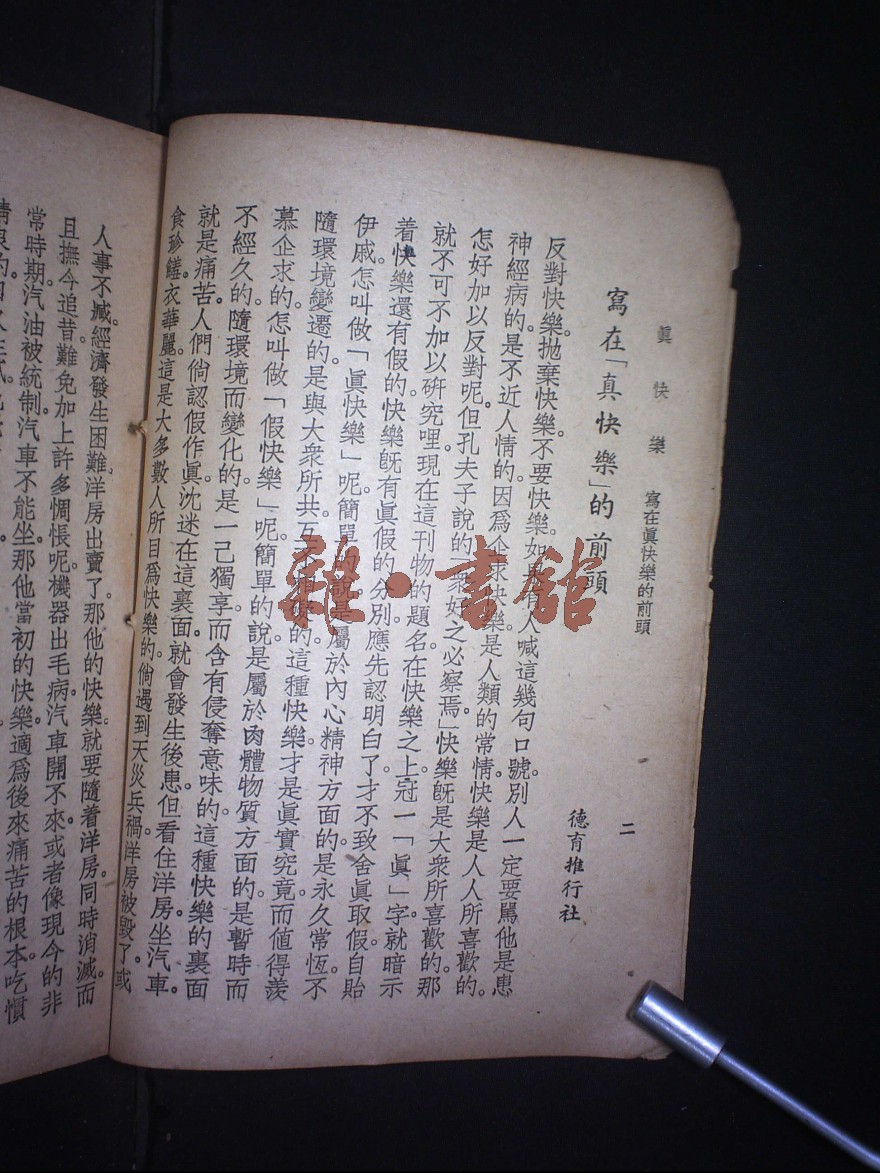 眞快樂 寫在眞快樂的前頭 二
寫在「真快樂」的前頭
德育推行社
反對快樂。拋棄快樂。不要快樂。如果有人喊這幾句口號。別人一定要罵他是患
神經病的。是不近人情的。因爲企求快樂。是人類的常情。快樂是人人所喜歡的。
怎好加以反對呢。但孔夫子說的「衆好之必察焉」快樂旣是大衆所喜歡的。那
就不可不加以硏究哩。現在這刊物的題名。在快樂之上。冠一「眞」字。就暗示
着快樂還有假的。快樂旣有眞假的分別。應先認明白了。才不致舍眞取假。自貽
伊戚。怎叫做「眞快樂」呢。簡單的說。是屬於內心精神方面的。是永久常恆。不
隨環境變遷的。是與大衆所共互
的。這種快樂。才是眞實究竟。而值得羨
慕企求的。怎叫做「假快樂」呢。簡單的說。是屬於肉體物質方面的。是暫時而
不經久的。隨環境而變化的。是一己獨享而含有侵奪意味的。這種快樂的裏面
就是痛苦。人們倘認假作眞。沈迷在這裏面。就會發生後患。但看住洋房。坐汽車。
食珍饈。衣華麗。這是大多數人所目爲快樂的。倘遇到天災兵禍。洋房被毀了。或
人事不臧。經濟發生困難。洋房出賣了。那他的快樂。就要隨着洋房。同時消滅。而
且撫今追昔。難免加上許多惆悵呢。機器出毛病。汽車開不來。或者像現今的非
常時期。汽油被統制。汽車不能坐。那他當初的快樂。適爲後來痛苦的根本。吃慣